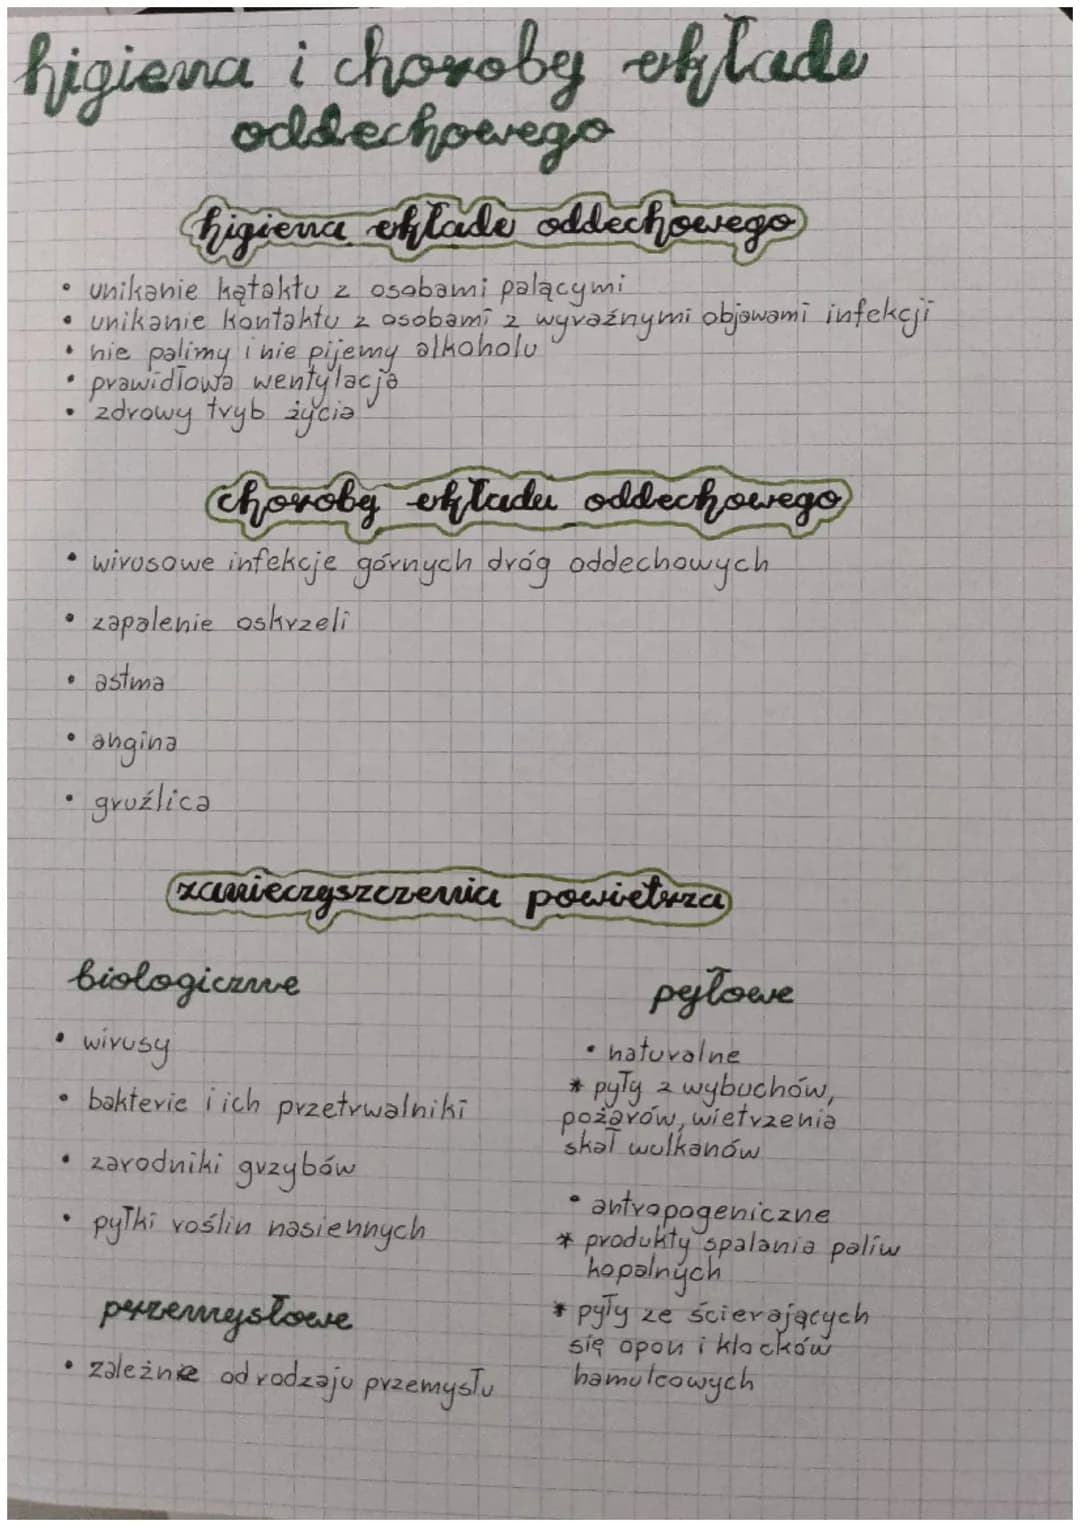 higiena i choroby układu
oddechowego
higiena układu oddechowego
• unikanie kątaktu z osobami palącymi
• unikanie kontaktu z osobami z wyraźnymi objawami infekcji
• nie palimy i nie pijemy alkoholu
• prawidłowa wentylacja
• zdrowy tryb życia
choroby układu oddechowego
• wirusowe infekcje górnych dróg oddechowych
• zapalenie oskrzeli
• astma
• angina
• gruźlica
zanieczyszczenia powietrza
biologiczne
• wirusy
• bakterie i ich przetrwalniki
• zarodniki grzybów
• pyłki roślin nasiennych
przemysłowe
• zależnie od rodzaju przemysłu
pyłowe
• naturalne
* pyły z wybuchów,
pożarów, wietrzenia
skał wulkanów
• antropogeniczne
* produkty spalania paliw
kopalnych
* pyły ze ścierających
się opon i klocków
hamulcowych